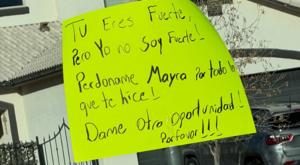 Tu Eres Fuerte,
Pero Yo no Soy Fuerte!
Perdoname Mayra Por todo lo
que te hice!
Dame Otra Oportunidad!
Por favor!!!